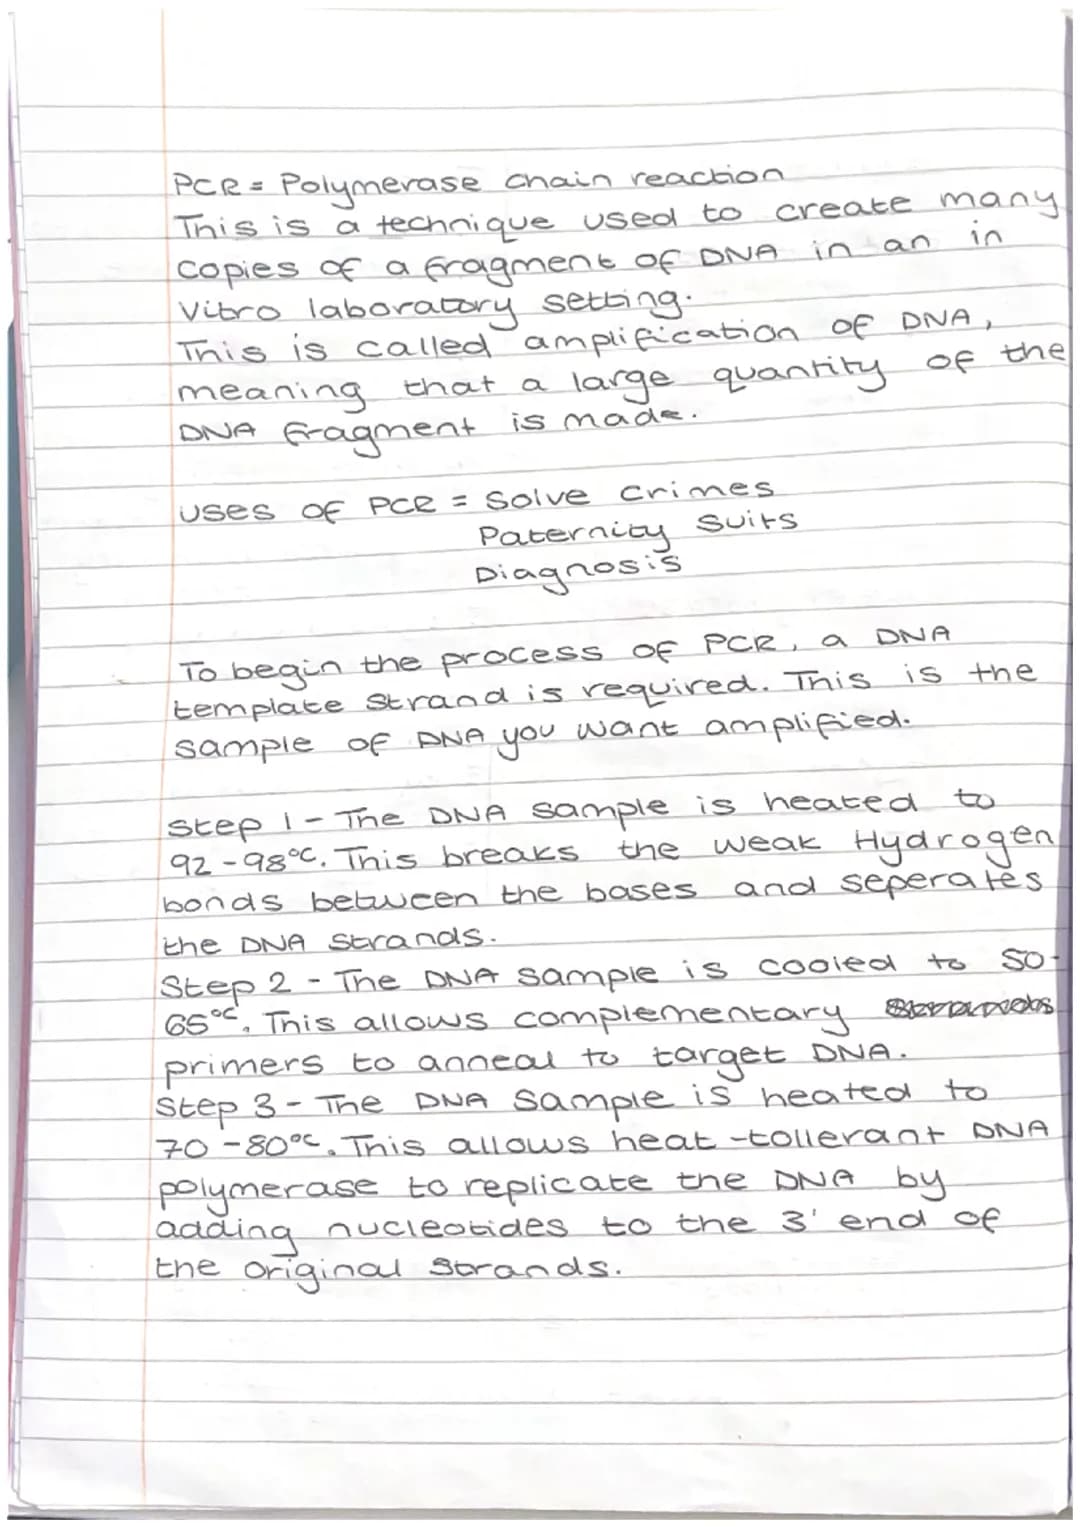 PCR = Polymerase chain reaction
This is a technique used to create many
copies of a fragment of DNA in an in
vitro laboratory setting.
This is called amplification of DNA,
meaning that a large quantity of the
DNA fragment is made.
uses of PCR = Solve crimes
Paternity Suits
Diagnosis
To begin the process of PCR, a DNA
template strand is required. This is the
sample of DNA you want amplified.
Step 1 - The DNA sample is heated to
92-98°C. This breaks the weak Hydrogen
bonds between the bases and seperates
the DNA strands.
Step 2 - The DNA sample is cooled to 50-
65°C. This allows complementary
primers to anneal to target DNA.
Step 3 - The DNA sample is heated to
70-80°C. This allows heat-tollerant DNA
polymerase to replicate the DNA by
adding nucleotides to the 3' end of
the original strands.